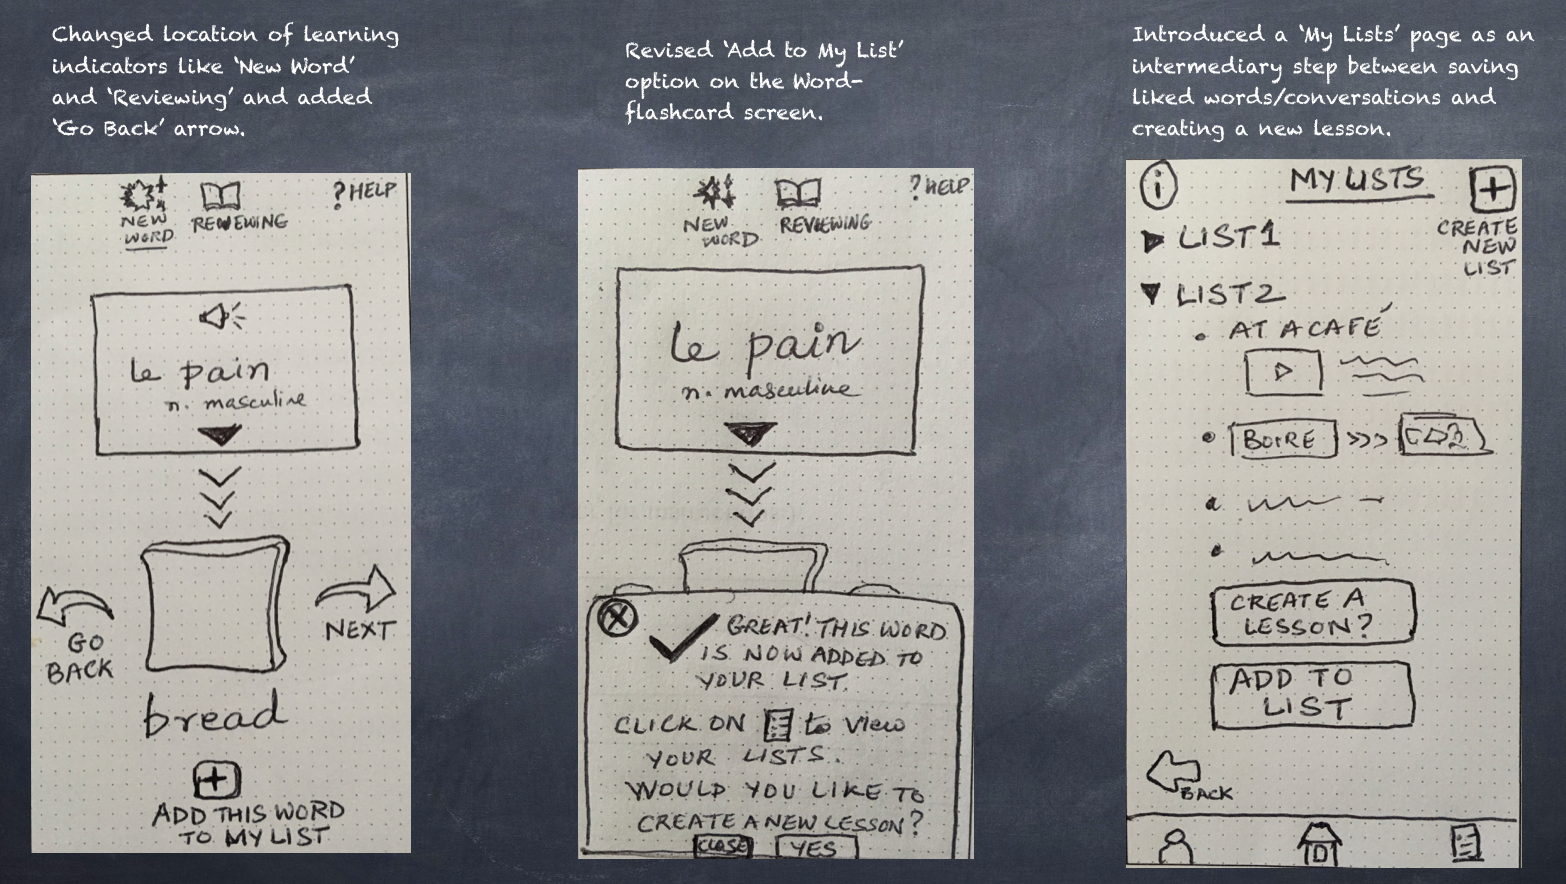 Changed location of learning
indicators like 'New Word'
and 'Reviewing' and added
'Go Back' arrow.
NEW
WORD
REVIEWING
? HELP
le pain
n. masculine
GO
BACK
NEXT
bread
ADD THIS WORD
TO MY LIST
Revised 'Add to My List'
option on the Word-
flashcard screen.
NEW
WORD
REVIEWING
? HELP
le pain
n. masculine
GREAT! THIS WORD
IS NOW ADDED TO
YOUR LIST.
CLICK ON to view
YOUR LISTS.
WOULD YOU LIKE TO
CREATE A NEW LESSON?
CLOSE YES
Introduced a 'My Lists' page as an
intermediary step between saving
liked words/conversations and
creating a new lesson.
i
MY LISTS
CREATE
NEW
LIST
LIST 1
LIST 2
• AT A CAFÉ
• BOIRE >>>
CREATE A
LESSON?
ADD TO
LIST
BACK